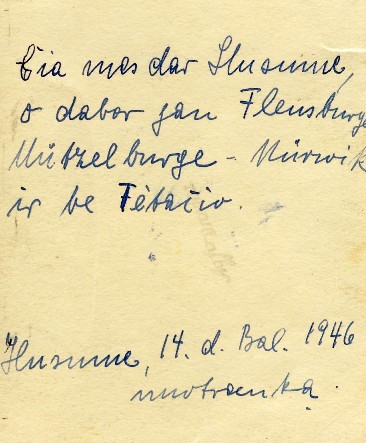 Čia mes dar Husume,
o dabar gan Flensburge
Mützelburge - Mürwik
ir be Tėtačio.
Husume, 14. d. Bal. 1946
nuotrauka.